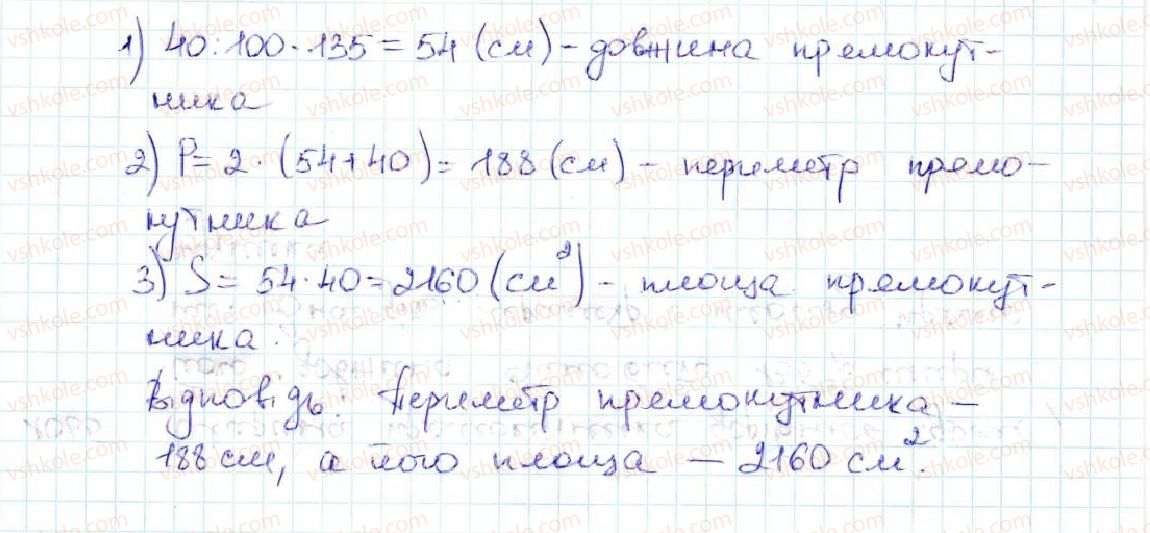 1) 40:100·135=54 (см) - довжина прямокут-
ника
2) P=2·(54+40)=188 (см) - периметр прямо-
кутника
3) S=54·40=2160 (см²) - площа прямокут-
ника.
Відповідь: Периметр прямокутника -
188 см, а його площа - 2160 см².